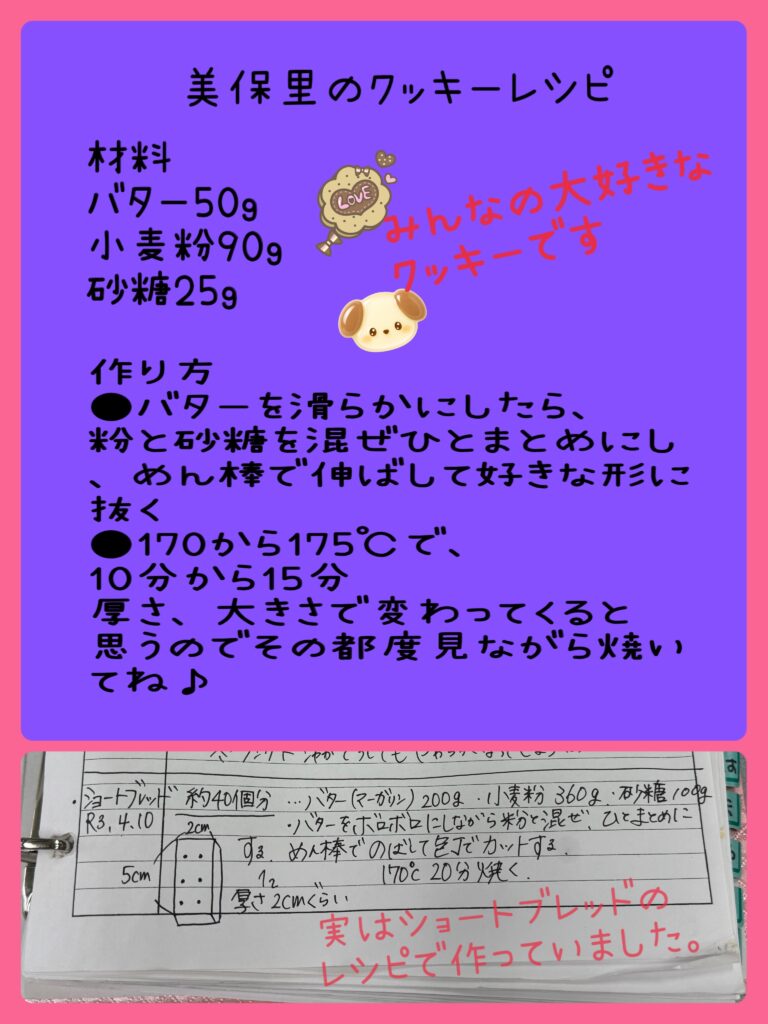 美保里のクッキーレシピ
材料
バター50g
小麦粉90g
砂糖25g
LOVE
みんなの大好きな
クッキーです
作り方
●バターを滑らかにしたら、
粉と砂糖を混ぜひとまとめにし
、めん棒で伸ばして好きな形に
抜く
●170から175℃で、
10分から15分
厚さ、大きさで変わってくると
思うのでその都度見ながら焼い
てね♪
・ショートブレッド 約40個分 …バター(マーガリン)200g・小麦粉 360g・砂糖100g
R3.4.10 ・バターをボロボロにしながら粉と混ぜ、ひとまとめに
2cm する。めん棒でのばして包丁でカットする。
5cm 170℃ 20分焼く。
厚さ2cmぐらい
実はショートブレッドの
レシピで作っていました。